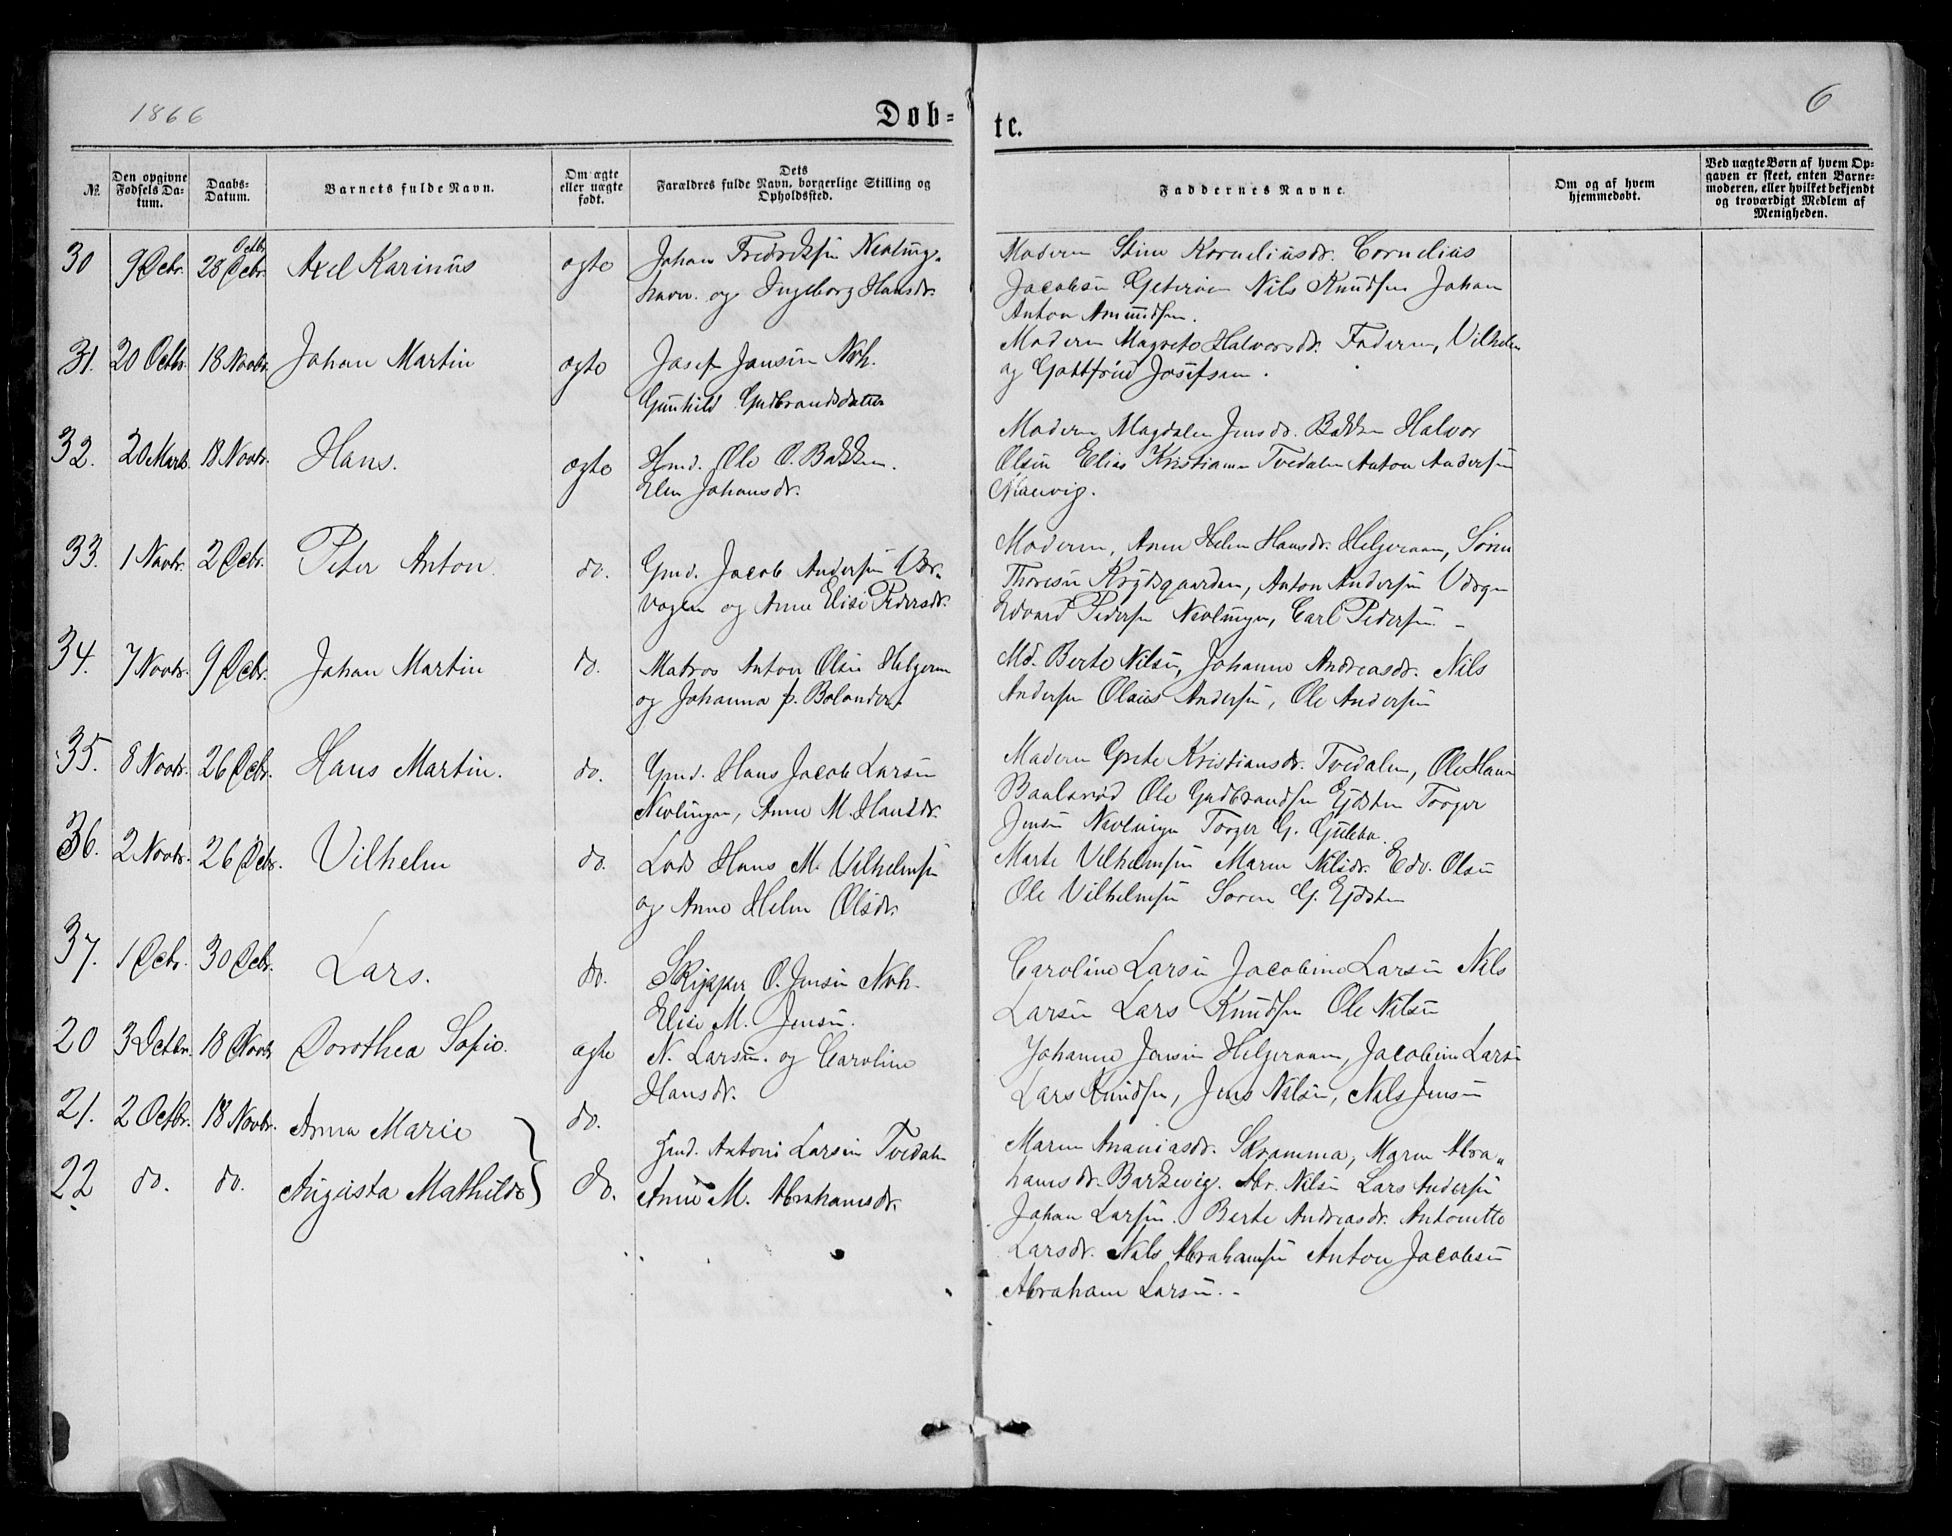 1866
Døb=
te.
6
№
Den opgivne Fødsels Da-tum.
Daabs-Datum.
Barnets fulde Navn.
Om ægte eller uægte født.
Dets Farældres fulde Navn, borgerlige Stilling og Opholdssted.
Faddernes Navne.
Om og af hvem hjemmedøbt.
Ved uægte Børn af hvem Op-gaven er skeet, enten Barne-moderen, eller hvilket bekjendt og troværdigt Medlem af Menigheden.
30 9 Octbr. 28 Octbr. Axel Karinus ægte Johan Fredriksen Nevlung-
havn og Ingeborg Hansdr.
Moderen Stine Korneliusdr. Cornelius
Jacobsen Geterøen Nils Knudsen Johan
Anton Amundsen.
31. 20 Octbr. 18 Novbr. Johan Martin ægte Josef Jansen Nvh.
Gunhild Gudbrandsdatter
Moderen Magrete Halvorsdr. Faderen, Vilhelm
og Gottfried Josefsen.
32. 20 Marts. 18 Novbr. Hans. ægte Hmd. Ole O. Bakken.
Elen Johansdr.
Moderen Magdalen Jensdr. Bakken Halvor
Olsen Elias Kristiansen Tvedalen Anton Andersen
Naevig.
33. 1 Novbr. 2 Decbr. Peter Anton. do. Gmd. Jacob Andersen Var-
vogen og Anne Elise Pedersdr.
Moderen, Anne Helen Hansdr. Helgeraaen, Søren
Thoresen Krydsgaarden, Anton Andersen
Edvard Pedersen Nevlungen, Carl Pedersen. -
34. 7 Novbr. 9 Decbr. Johan Martin do. Matros Anton Olsen Helgeren
og Johanna f. Bolander.
Md. Berte Nilsen, Johanne Andreasdr. Nils
Andersen Olaus Andersen, Ole Andersen
35. 8 Novbr. 26 Decbr. Hans Martin. do. Gmd. Hans Jacob Larsen
Nevlungen, Anne M. Hansdr.
Moderen Grete Kristiansdr. Tvedalen, Ole Hans
Baalsrød Ole Gudbrandsen Ejdsten Torger
Jensen Nevlungen Torger G. Gubba.
36. 2 Novbr. 26 Decbr. Vilhelm do. Lods Hans M. Vilhelmsen
og Anne Helen Olsdr.
Marte Vilhelmsen Maren Nilsdr. Edv. Olsen
Ole Vilhelmsen Soren G. Ejdsten
37. 1 Decbr. 30 Decbr. Lars. do. Skipper O. Jensen Nvh.
Elise M. Jensen.
Caroline Larsen Jacobine Larsen Nils
Larsen Lars Knudsen Ole Nilsen
20 3 Octbr. 18 Novbr Dorothea Sofie. ægte N. Larsen. og Caroline
Hansdr.
Johanne Jensen Helgeraaen, Jacobine Larsen
Lars Knudsen, Jens Nilsen, Nils Jensen
21. 2 Octbr. 18 Novbr. Anna Marie do.
22 do. do. Augusta Mathilde do.
Hmd. Antoni Larsen Tvedalen
Anne M. Abrahamsdr.
Maren Ananiasdr. Skramma, Maren Abra„
hamsdr. Barkevig. Abr. Nilsen Lars Andersen
Johan Larsen. Berte Andreasdr. Antonette
Larsdr. Nils Abrahamsen Anton Jacobsen
Abraham Larsen. -